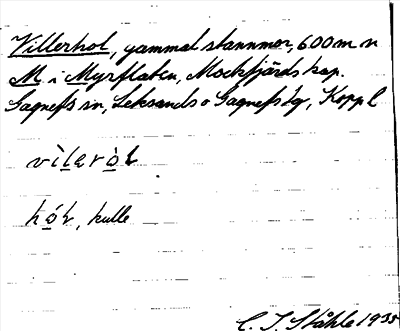 Villerhol, gammal stannmor, 600 m n
M i Myrflaten, Mockfjärds kap.
Gagnefs sn, Leksands o Gagnefs tg, Koppl
vìleròl
hól, kulle
C. I. Ståhle 1935